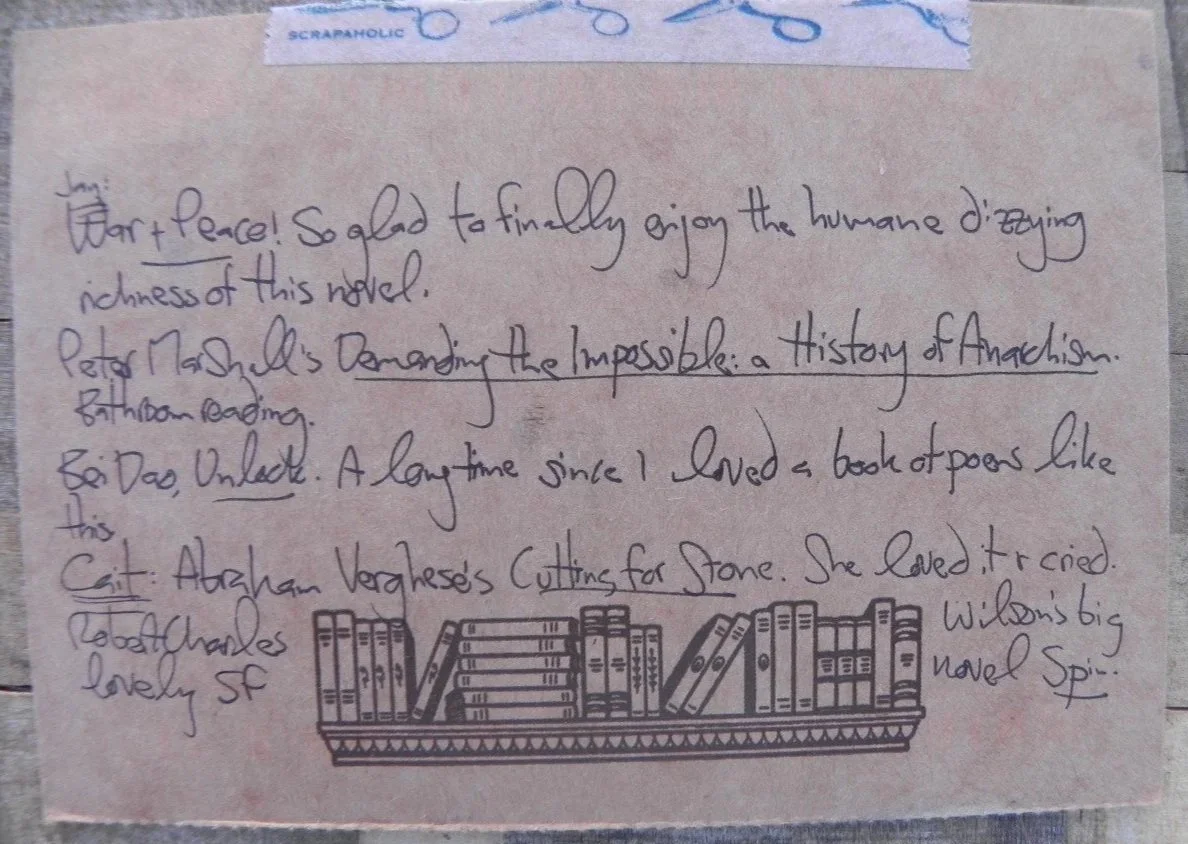 SCRAPAHOLIC
Jay:
War + Peace! So glad to finally enjoy the humane dizzying
richness of this novel.
Peter Marshall's Demanding the Impossible: a History of Anarchism.
Bathroom reading.
Bei Dao, Unlock. A long time since I loved a book of poems like
this
Cait: Abraham Verghese's Cutting for Stone. She loved it + cried.
Robert Charles Wilson's big
lovely SF novel Spin.